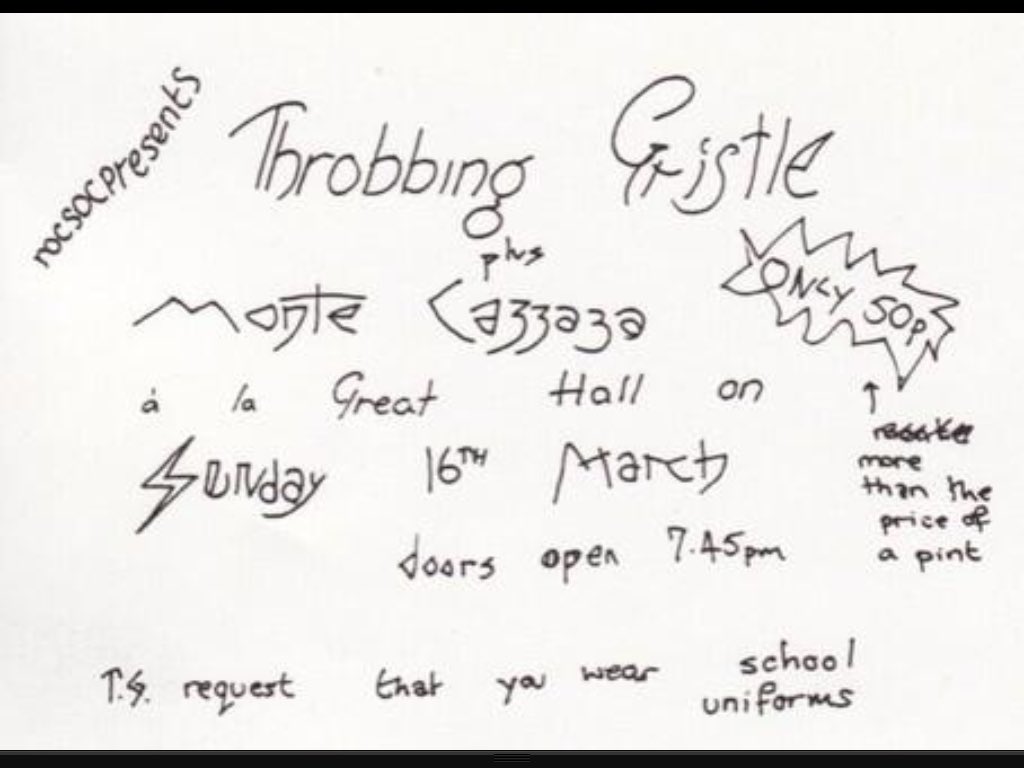 rocsocpresents
Throbbing Gristle
plus
Monte Cazzaza
ONLY 50p
à la Great Hall on
Sunday 16TH March
more
than the
price of
a pint
doors open 7.45pm
T.G. request that you wear school
uniforms